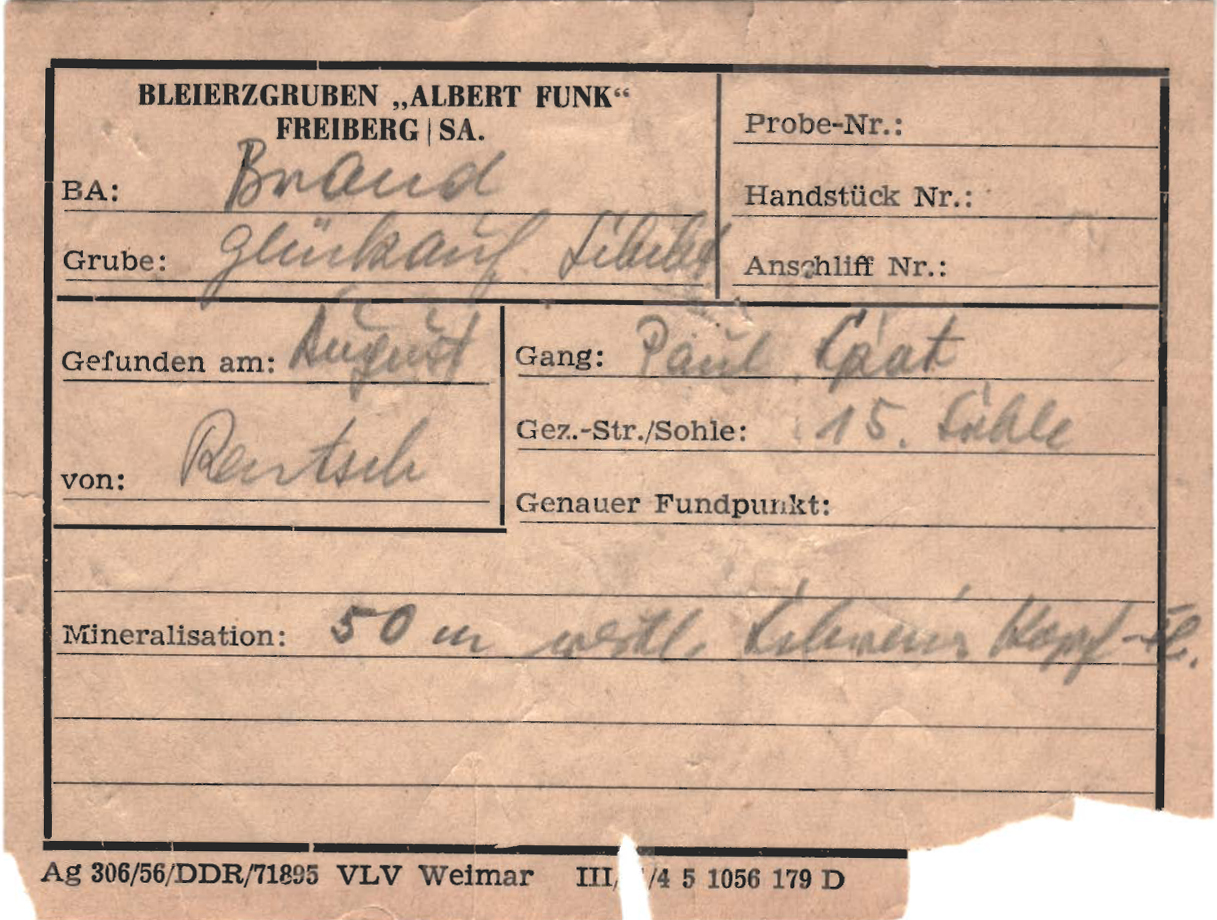 BLEIERZGRUBEN „ALBERT FUNK“
FREIBERG | SA.
BA: Brand
Grube: Glückauf
Probe-Nr.:
Handstück Nr.:
Anschliff Nr.:
Gefunden am: August
von: Rentsch
Gang: Paul Spat
Gez.-Str./Sohle: 15. Sohle
Genauer Fundpunkt:
Mineralisation: 50 m westl.
Ag 306/56/DDR/71895 VLV Weimar III/ /4 5 1056 179 D